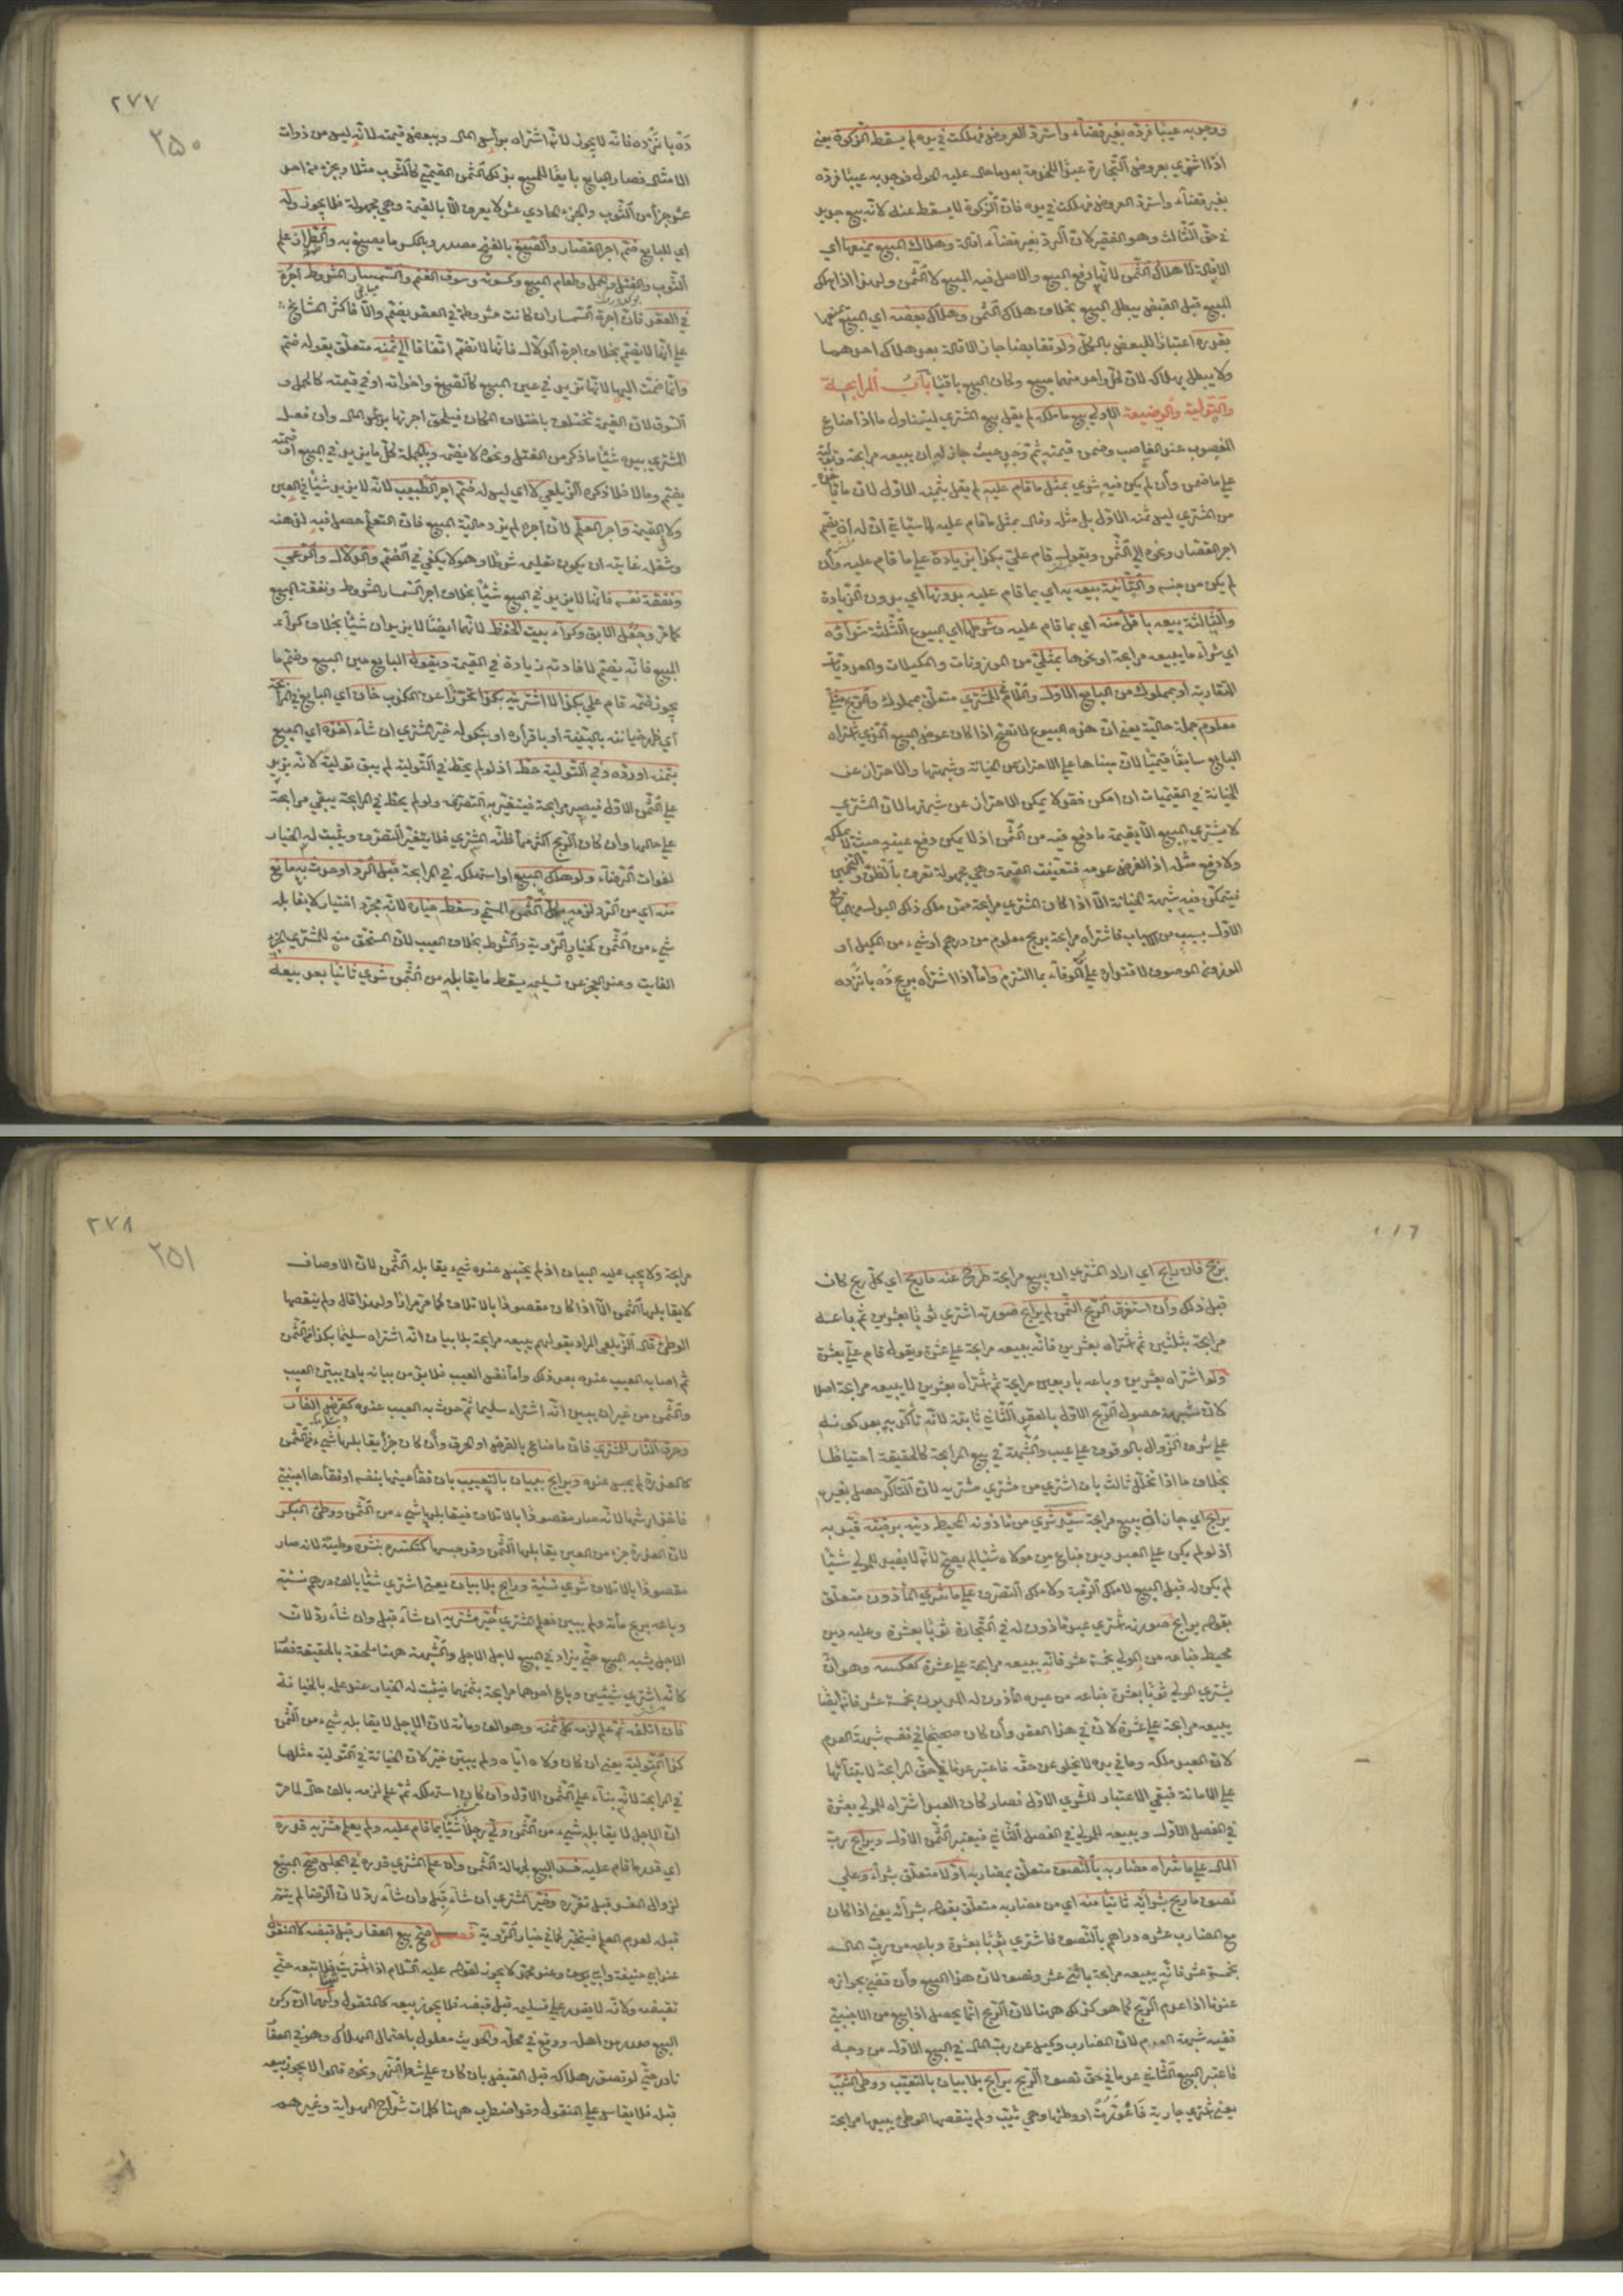 ووجد به عيبا فرده بغير قضاء واسترد العروض فهلكت في يده لم يسقط الزكوة يعني
اذا اشترى بعروض التجارة عبدا للخدمة بعد ما حال عليه الحول فوجد به عيبا فرده
بغير قضاء واسترد العروض فهلكت في يده فان الزكوة لا يسقط عنه لانه بيع جديد
في حق الثالث وهو الفقير لان الرد بغير قضاء اقالة وهلاك المبيع يمنعها اي
الاقالة لا هلاك الثمن لانها رفع البيع والاصل فيه المبيع لا الثمن ولهذا اذا هلك
المبيع قبل القبض يبطل البيع بخلاف هلاك الثمن وهلاك بعضه اي المبيع يمنعها
بقدره اعتبارا للبعض بالكل ولو تقايضا جاز الاقالة بعد هلاك احدهما
ولا يبطل بهلاكه لان كل واحد منهما مبيع وكان البيع باقيا باب المرابحة
والتولية والوضيعة الاولى بيع ما ملكه لم يقل بيع المشترى ليتناول ما اذا ضاع
المغصوب عند الغاصب وضمن قيمته ثم وجد حيث جاز له ان يبيعه مرابحة وتولية
على ما ضمن وان لم يكن فيه شرى بمثل ما قام عليه لم يقل بثمنه الاول لان ما يأخذه
من المشتري ليس ثمنه الاول بل مثله وقال بمثل ما قام عليه لما سيأتي ان له ان يضم
اجر القصار ونحوه الى الثمن ويقول قام علي بكذا بزيادة على ما قام عليه وان
لم يكن من جنسه والثانية بيعه به اي بما قام عليه بدونها اي بدون الزيادة
والثالثة بيعه باقل منه اي بما قام عليه وشرطها اي البيوع الثلثة شراؤه
اي شراء ما يبيعه مرابحة او نحوها بمثلي من الموزونات والمكيلات والعدديات
المتقاربة او بمملوك من البايع الاول واللام للمشتري متعلق بمملوك والربح مثلي
معلوم جملة حالية يعني ان هذه البيوع لا تصح اذا كان عوض المبيع الذي اشتراه
البايع سابقا قيميا لان مبناها على الاحتراز عن الخيانة وشبهتها والاحتراز عن
الخيانة في القيميات ان امكن فقد لا يمكن الاحتراز عن شبهتها لان المشتري
لا يشتري المبيع الا بقيمة ما دفع فيه من الثمن اذ لا يمكن دفع عينه حيث لا يملكه
ولا دفع مثله اذ الفرض عدمه فتعينت القيمة وهي مجهولة تعرف بالظن والتخمين
فيتمكن فيه شبهة الخيانة الا اذا كان المشتري مرابحة ممن ملك ذلك البدل من البايع
الاول بسبب من الاسباب فاشتراه مرابحة بربح معلوم من درهم او شيء من المكيل او
الموزون الموصوف لاقتداره على الوفاء بما التزم واما اذا اشتراه بربح ده يازده
ده يازده فانه لا يجوز لانه اشتراه برأس المال وببعض قيمته لانه ليس من ذوات
الامثال فصار البايع بايعا للمبيع بذلك الثمن القيمي كالثوب مثلا وبجزء من احد
عشر جزأ من الثوب والجزء الحادي عشر لا يعرف الا بالقيمة وهي مجهولة فلا يجوز وله
اي للبايع ضم اجر القصار والصبغ بالفتح مصدر وبالكسر ما يصبغ به والطراز علم
الثوب والفتل والحمل وطعام المبيع وكسوته وسوق الغنم والسمسار المشروط اجره
في العقد فان اجرة السمسار ان كانت مشروطة في العقد يضم والا فاكثر المشايخ
على انها لا يضم بخلاف اجرة الدلال فانها لا تضم اتفاقا الى ثمنه متعلق بقوله ضم
وانما ضمت اليها لانها تزيد في عين المبيع كالصبغ واخواته او في قيمته كالحمل و
السوق لان القيمة تختلف باختلاف المكان فيلحق اجرتها برأس المال وان فعل
المشتري بيده شيئا ما ذكر من الفتل ونحوه لا يضمه وبالجملة كل ما يزيد في المبيع او قيمته
يضم وما لا فلا ذكره الزيلعي لا اي ليس له ضم اجر الطبيب لانه لا يزيد شيئا في العين
ولا القيمة واجر المعلم لان اجره لم يزد مالية المبيع فان التعلم حصل فيه لذهنه
وشغله غايته ان يكون تعليمه شرطا وهو لا يكفي في الضم والدلال والراعي
ونفقة نفسه فانها لا يزيد في المبيع شيئا بخلاف اجر السمسار المشروط ونفقة المبيع
كما مر وجعل الابق وكراء بيت الحفظ لانهما ايضا لا يزيدان شيئا بخلاف كراء
المبيع فانه يضم لافادته زيادة في القيمة ويقول البايع حين البيع وضم ما
يجوز ضمه قام علي بكذا لا اشتريته بكذا تحرزا عن الكذب خان اي البايع في المرابحة
اي ظهر خيانته بالبينة او باقراره او نكوله خير المشتري ان شاء اخذه اي المبيع
بثمنه او رده وفي التولية حط اذ لو لم يحط في التولية لم يبق تولية لانه يزيد
على الثمن الاول فيصير مرابحة فيتغير به التصرف ولو لم يحط في المرابحة يبقى مرابحة
على حالها وان كان الربح اكثر مما ظنه المشتري فلا يتغير التصرف ويثبت له الخيار
لفوات الرضاء ولو هلك المبيع او استهلكه في المرابحة قبل الرد او حدث به مانع
منه اي من الرد لزمه كل الثمن المسمى وسقط خياره لانه مجرد اختيار لا يقابله
شيء من الثمن كخيار الرؤية والشرط بخلاف العيب لان المستحق منه للمشتري الجزء
الفايت وعند العجز عن تسليمه يسقط ما يقابله من الثمن شرى ثانيا بعد بيعه
بربح فان رابح اي اراد المشتري ان يبيع مرابحة طرح عنه ما ربح اي كل ربح كان
قبل ذلك وان استغرق الربح الثمن لم يرابح صورته اشترى ثوبا بعشرين ثم باعه
مرابحة بثلثين ثم اشتراه بعشرين فانه يبيعه مرابحة على عشرة ويقول قام علي بعشرة
ولو اشتراه بعشرين وباعه باربعين مرابحة ثم اشتراه بعشرين لا يبيعه مرابحة اصلا
لان شبهة حصول الربح الاول بالعقد الثاني ثابتة لانه تأكد به بعد كونه
على شرف الزوال بالوقوف على عيب والشبهة في بيع المرابحة كالحقيقة احتياطا
بخلاف ما اذا تخلل ثالث بان اشترى من مشتري مشتريه لان التأكد حصل بغيره
يرابح اي جاز ان يبيع مرابحة سيد شرى من مأذونه المحيط دينه برقبته قيد به
اذ لو لم يكن على العبد دين فباع من مولاه شيئا لم يصح لانه لا يفيد للمولى شيئا
لم يكن له قبل البيع لا ملك الرقبة ولا ملك التصرف على ما شرى المأذون متعلق
بقوله يرابح صورته اشترى عبد مأذون له في التجارة ثوبا بعشرة وعليه دين
محيط فباعه من المولى بخمسة عشر فانه يبيعه مرابحة على عشرة كعكسه وهو ان
يشتري المولى ثوبا بعشرة فباعه من عبده المأذون له المديون بخمسة عشر فانه ايضا
يبيعه مرابحة على عشرة لان في هذا العقد وان كان صحيحا في نفسه شبهة العدم
لان العبد ملكه وما في يده لا يخلو عن حقه فاعتبر عدما في حق المرابحة لابتنائها
على الامانة فبقي الاعتبار للشرى الاول فصار كان العبد اشتراه للمولى بعشرة
في الفصل الاول ويبيعه للمولى في الفصل الثاني فيعتبر الثمن الاول ويرابح رب
المال على ما شراه مضاربه بالنصف متعلق بمضاربه اولا متعلق بشراه وعلى
نصف ما ربح بشرائه ثانيا منه اي من مضاربه متعلق بقوله بشرائه يعني اذا كان
مع المضارب عشرة دراهم بالنصف فاشترى ثوبا بعشرة وباعه من رب المال
بخمسة عشر فانه يبيعه مرابحة باثنى عشر ونصف لان هذا البيع وان قضي بجوازه
عندنا اذا عدم الربح كما هو كذلك ههنا لان الربح انما يحصل اذا بيع من الاجنبي
ففيه شبهة العدم لان المضارب وكيل عن رب المال في البيع الاول من وجه
فاعتبر البيع الثاني عدما في حق نصف الربح يرابح بلا بيان بالتعيب ووطئ الثيب
يعني اشترى جارية فاعورت او وطئها وهي ثيب ولم ينقصها الوطئ يبيعها مرابحة
مرابحة ولا يجب عليه البيان اذ لم يحتبس عنده شيء يقابله الثمن لان الاوصاف
لا يقابلها الثمن الا اذا كان مقصودا بالاتلاف كما مر مرارا ولهذا قال ولم ينقصها
الوطئ قال الزيلعي المراد بقولهم يبيعه مرابحة بلا بيان انه اشتراه سليما بكذا من الثمن
ثم اصابه العيب عنده بعد ذلك واما نفس العيب فلا بد من بيانه بان يبين العيب
والثمن من غير ان يبين انه اشتراه سليما ثم حدث به العيب عنده كقرض الفأر
وحرق النار للمشترى فان ما ضاع بالقرض او الحرق وان كان جزأ يقابلها شيء من الثمن
كالعذرة لم يحبس عنده ويرابح ببيان بالتعييب بان فقأ عينها بنفسه او فقأها اجنبي
فاخذ ارشها لانه صار مقصودا بالاتلاف فيقابلها شيء من الثمن ووطئ البكر
لان العذرة جزء من العين يقابلها الثمن وقد حبسها كتكسره بنشره وطيه لانه صار
مقصودا بالاتلاف شرى نسئة ورابح بلا بيان يعني اشترى شيئا بالف درهم نسئة
وباعه بربح مأة ولم يبين فعلم المشتري خير مشتريه ان شاء قبل وان شاء رد لان
الاجل يشبه المبيع حتى يزاد في المبيع لاجل الاجل والشبهة ههنا ملحقة بالحقيقة فصا
كانه اشترى شيئين وباع احدهما مرابحة بثمنهما فيثبت له الخيار عند علمه بالخيانة
فان اتلفه ثم علم لزمه كل ثمنه وهو الف ومائة لان الاجل لا يقابله شيء من الثمن
كذا التولية يعني ان كان ولاه اياه ولم يبين خير لان الخيانة في التولية مثلها
في المرابحة لانه بناء على الثمن الاول وان كان استهلكه ثم علم لزمه بالف حالة لما مر
ان الاجل لا يقابله شيء من الثمن ولى رجلا شيئا بما قام عليه ولم يعلم مشتريه قدره
اي قدر ما قام عليه فسد البيع لجهالة الثمن وان علم المشتري قدره في المجلس صح البيع
لزوال المفسد قبل تقرره وخير المشتري ان شاء قبل وان شاء رد لان الرضا لم يتم
قبله لعدم العلم فيتخير كما في خيار الرؤية فصل صح بيع العقار قبل قبضه لا المنقول
عند ابي حنيفة وابي يوسف وعند محمد لا يجوز لقوله عليه السلام اذا اشتريت شيئا فلا تبعه حتى
تقبضه ولانه لا يقدر على تسليمه قبل قبضه فلا يجوز بيعه كالمنقول ولهما ان ركن
البيع صدر من اهله ووقع في محله والحديث معلول باحتمال الهلاك وهو في العقا
نادر حتى لو تصور هلاكه قبل القبض بان كان على شط النهر ونحوه قالوا لا يجوز بيعه
قبله فلا يقاس على المنقول وقد اضطرب ههنا كلمات شراح الهداية وغيرهم
٢٧٧
٢٥٠
٢٧٨
٢٥١